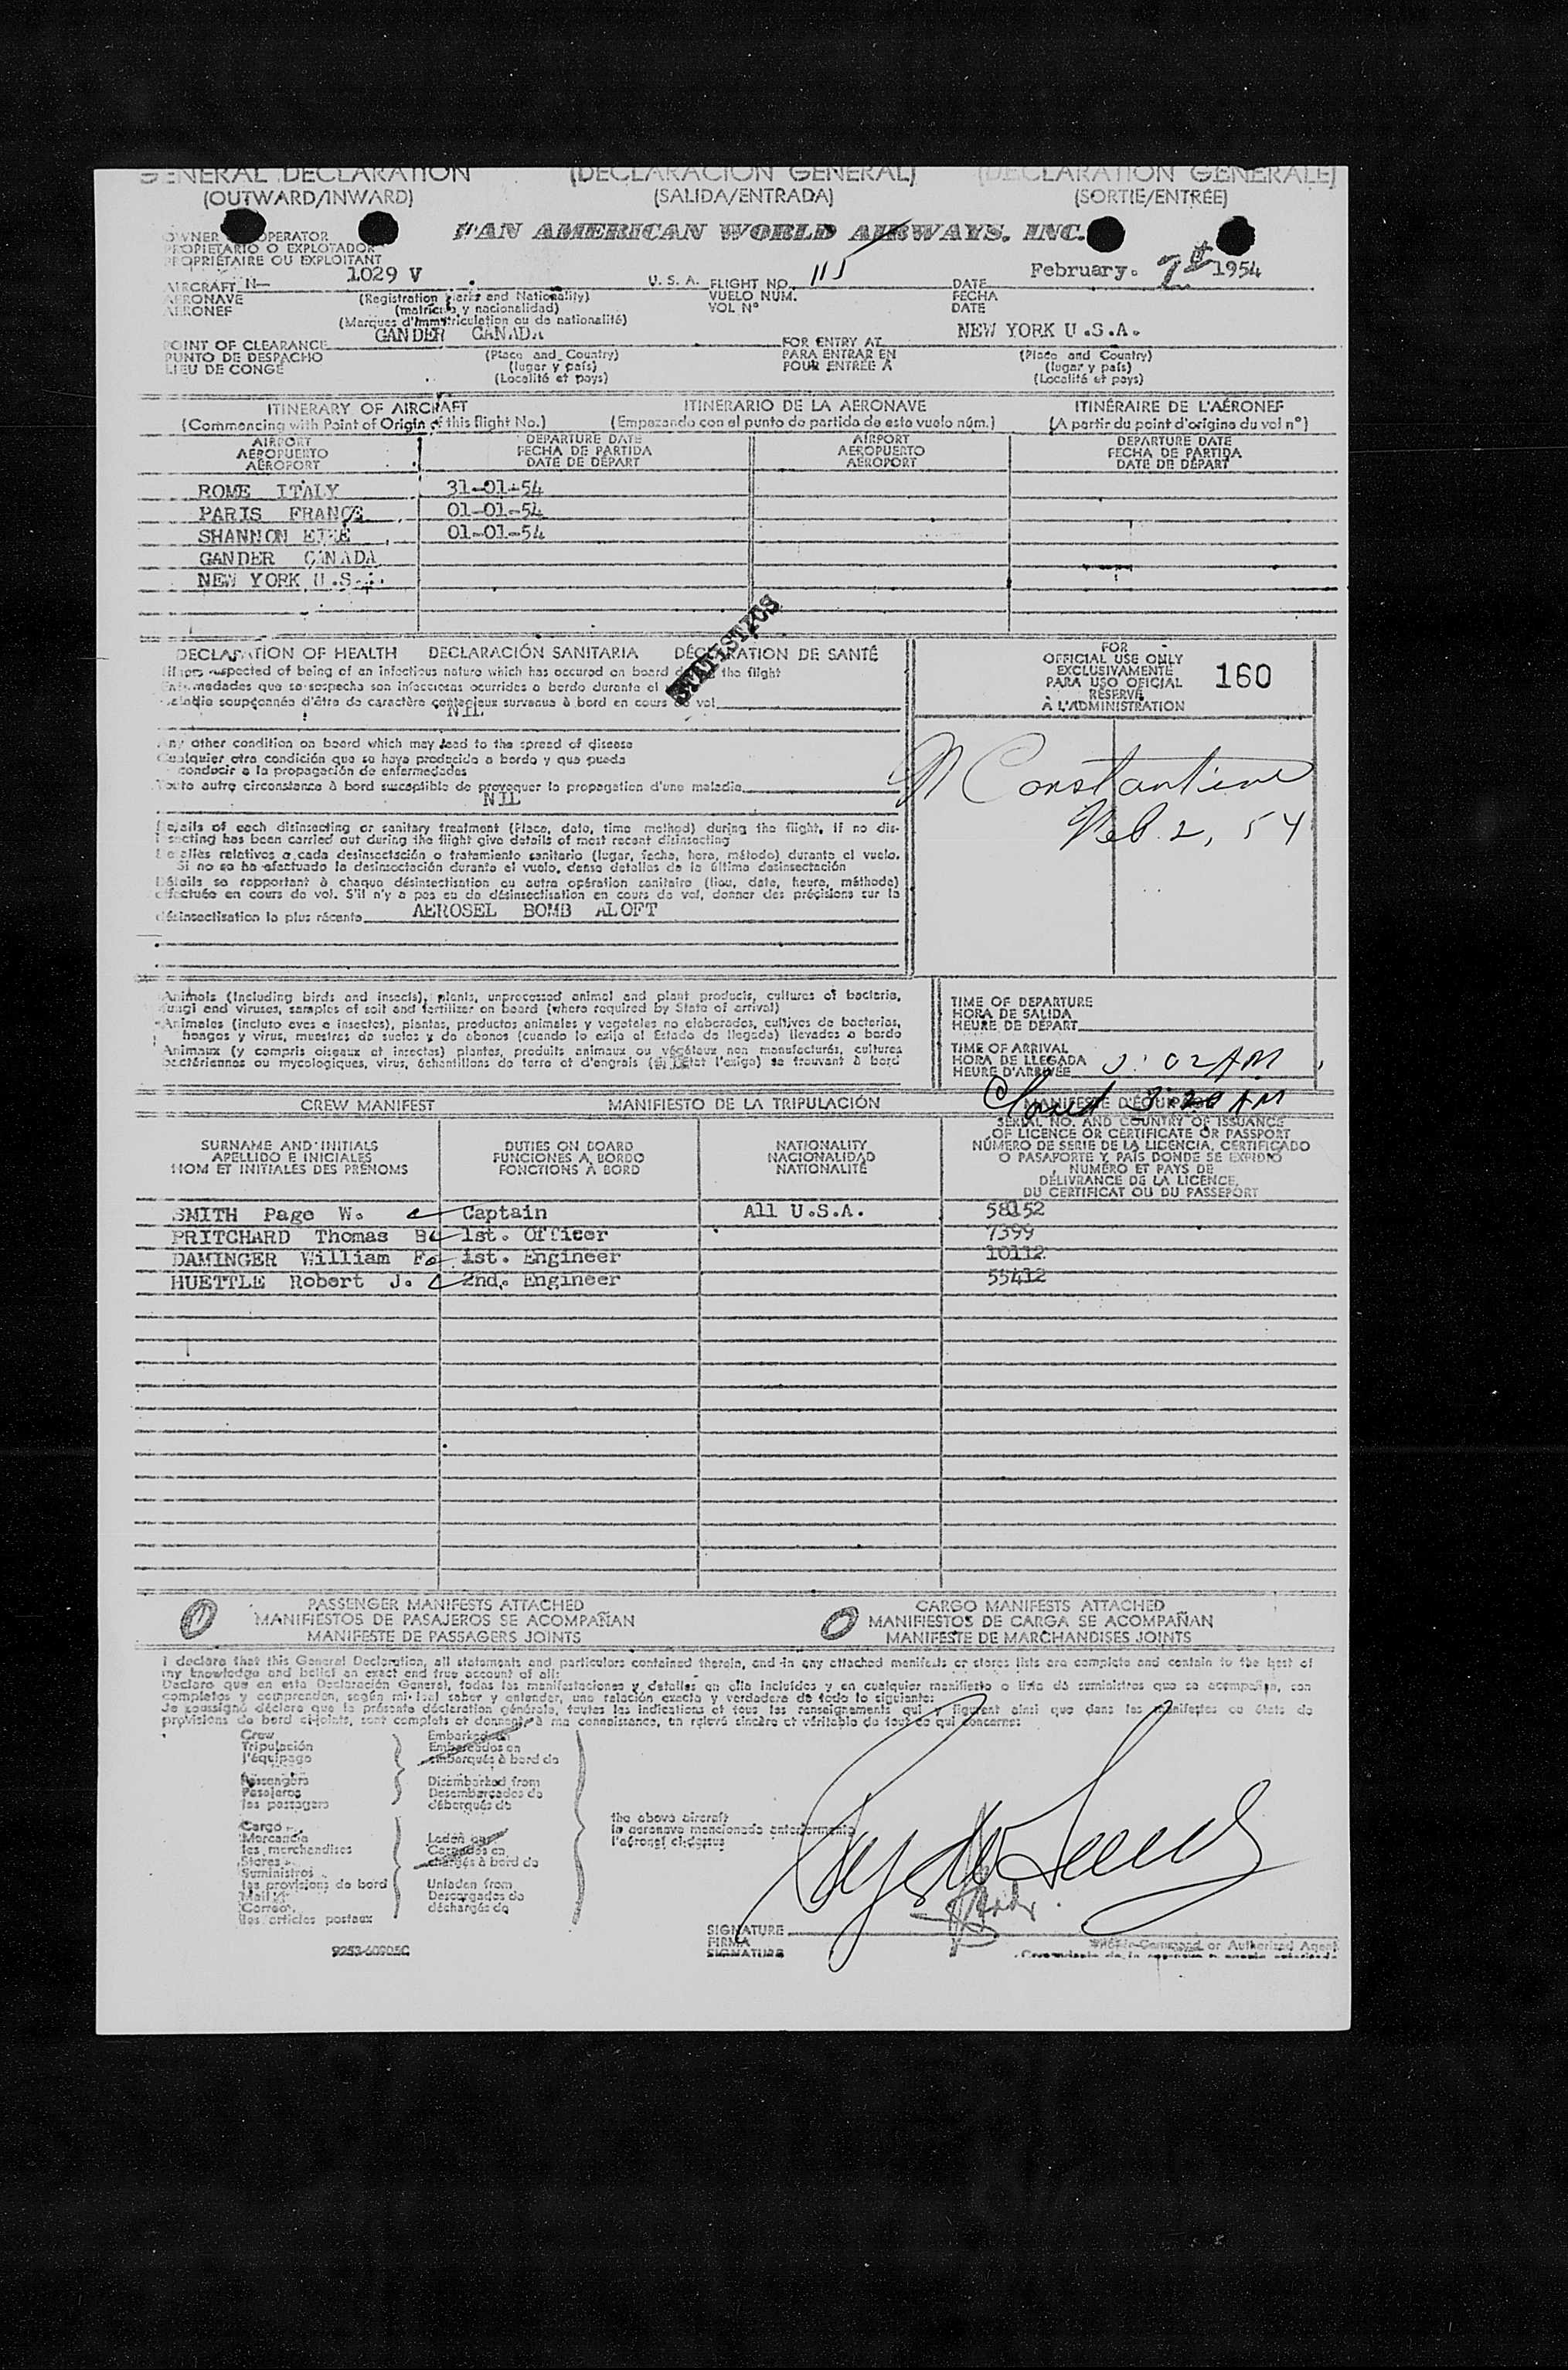 GENERAL DECLARATION (DECLARACIÓN GENERAL) (DECLARATION GENERALE)
(OUTWARD/INWARD) (SALIDA/ENTRADA) (SORTIE/ENTRÉE)
OWNER OPERATOR
PROPIETARIO O EXPLOTADOR
PROPRIÉTAIRE OU EXPLOITANT
PAN AMERICAN WORLD AIRWAYS, INC.
AIRCRAFT N- 1029 V U. S. A. FLIGHT NO. DATE February. 1954
AERONAVE (Registration Marks and Nationality) VUELO NUM. FECHA
AERONEF (matricula y nacionalidad) VOL N° DATE
(Marques d'Immatriculation ou de nationalité)
POINT OF CLEARANCE GANDER CANADA FOR ENTRY AT NEW YORK U.S.A.
PUNTO DE DESPACHO (Place and Country) PARA ENTRAR EN (Place and Country)
LIEU DE CONGÉ (lugar y país) POUR ENTRÉE À (lugar y país)
(Localité et pays) (Localité et pays)
ITINERARY OF AIRCRAFT ITINERARIO DE LA AERONAVE ITINÉRAIRE DE L'AÉRONEF
(Commencing with Point of Origin of this flight No.) (Empezando con el punto de partida de este vuelo núm.) (A partir du point d'origine du vol n°)
AIRPORT DEPARTURE DATE AIRPORT DEPARTURE DATE
AEROPUERTO FECHA DE PARTIDA AEROPUERTO FECHA DE PARTIDA
AÉROPORT DATE DE DÉPART AÉROPORT DATE DE DÉPART
ROME ITALY 31-01-54
PARIS FRANCE 01-01-54
SHANNON EIRE 01-01-54
GANDER CANADA
NEW YORK U.S.A.
STATISTICS
DECLARATION OF HEALTH DECLARACIÓN SANITARIA DÉCLARATION DE SANTÉ
Illness suspected of being of an infectious nature which has occured on board during the flight
Enfermedades que se sospecha son infecciosas ocurridas a bordo durante el
Maladie soupçonnée d'être de caractère contagieux survenue à bord en cours de vol
NIL
Any other condition on board which may lead to the spread of disease
Cualquier otra condición que se haya producido a bordo y que pueda
conducir a la propagación de enfermedades
Toute autre circonstance à bord susceptible de provoquer la propagation d'une maladie
NIL
Details of each disinsecting or sanitary treatment (Place, date, time method) during the flight, if no dis-
insecting has been carried out during the flight give details of most recent disinsecting
Detalles relativos a cada desinsectación o tratamiento sanitario (lugar, fecha, hora, método) durante el vuelo.
Si no se ha efectuado la desinsectación durante el vuelo, dense detalles de la última desinsectación
Détails se rapportant à chaque désinsectisation ou autre opération sanitaire (lieu, date, heure, méthode)
effectuée en cours de vol. S'il n'y a pas eu de désinsectisation en cours de vol, donner des précisions sur la
désinsectisation la plus récente AEROSEL BOMB ALOFT
FOR
OFFICIAL USE ONLY
EXCLUSIVAMENTE
PARA USO OFICIAL
RÉSERVÉ
À L'ADMINISTRATION
160
M Constantine
Feb. 2, 54
Animals (including birds and insects), plants, unprocessed animal and plant products, cultures of bacteria,
fungi and viruses, samples of soil and fertilizer on board (where required by State of arrival)
Animales (incluso aves e insectos), plantas, productos animales y vegetales no elaborados, cultivos de bacterias,
hongos y virus, muestras de suelos y de abonos (cuando lo exija el Estado de llegada) llevados a bordo
Animaux (y compris oiseaux et insectes) plantes, produits animaux ou végétaux non manufacturés, cultures
bactériennes ou mycologiques, virus, échantillons de terre et d'engrais (si l'État l'exige) se trouvant à bord
TIME OF DEPARTURE
HORA DE SALIDA
HEURE DE DÉPART
TIME OF ARRIVAL
HORA DE LLEGADA
HEURE D'ARRIVÉE 02 AM
Closed 3:20 AM
CREW MANIFEST MANIFIESTO DE LA TRIPULACIÓN MANIFESTE D'ÉQUIPAGE
SURNAME AND INITIALS DUTIES ON BOARD NATIONALITY
APELLIDO E INICIALES FUNCIONES A BORDO NACIONALIDAD
NOM ET INITIALES DES PRÉNOMS FONCTIONS À BORD NATIONALITÉ
SERIAL NO. AND COUNTRY OF ISSUANCE
OF LICENCE OR CERTIFICATE OR PASSPORT
NÚMERO DE SERIE DE LA LICENCIA, CERTIFICADO
O PASAPORTE Y PAÍS DONDE SE EXPIDIÓ
NUMÉRO ET PAYS DE
DÉLIVRANCE DE LA LICENCE,
DU CERTIFICAT OU DU PASSEPORT
SMITH Page W. Captain All U.S.A. 58152
PRITCHARD Thomas B 1st. Officer 7399
DAMINGER William F. 1st. Engineer 10112
HUETTLE Robert J. 2nd. Engineer 55412
PASSENGER MANIFESTS ATTACHED CARGO MANIFESTS ATTACHED
0 MANIFIESTOS DE PASAJEROS SE ACOMPAÑAN 0 MANIFIESTOS DE CARGA SE ACOMPAÑAN
MANIFESTE DE PASSAGERS JOINTS MANIFESTE DE MARCHANDISES JOINTS
I declare that this General Declaration, all statements and particulars contained therein, and in any attached manifests or stores lists are complete and contain to the best of
my knowledge and belief an exact and true account of all:
Declaro que en esta Declaración General, todas las manifestaciones y detalles en ella incluídos y en cualquier manifiesto o lista de suministros que se acompañan, son
completos y comprenden, según mi leal saber y entender, una relación exacta y verdadera de todo lo siguiente:
Je soussigné déclare que la présente déclaration générale, toutes les indications et tous les renseignements qui y figurent ainsi que dans les manifestes ou états de
provisions de bord ci-joints, sont complets et donnent, à ma connaissance, un relevé sincère et véritable de tout ce qui concerne:
Crew Embarked on
Tripulación Embarcados en
l'équipage embarqués à bord de
Passengers Disembarked from
Pasajeros Desembarcados de
les passagers débarqués de
Cargo
Mercancía Laden on
les merchandises Cargados en
Stores chargés à bord de
Suministros
les provisions de bord Unladen from
Mail Descargados de
Correo déchargés de
les articles postaux
the above aircraft
la aeronave mencionada anteriormente
l'aéronef ci-dessus
SIGNATURE
FIRMA
SIGNATURE
or Authorized Agent
9253-60905C